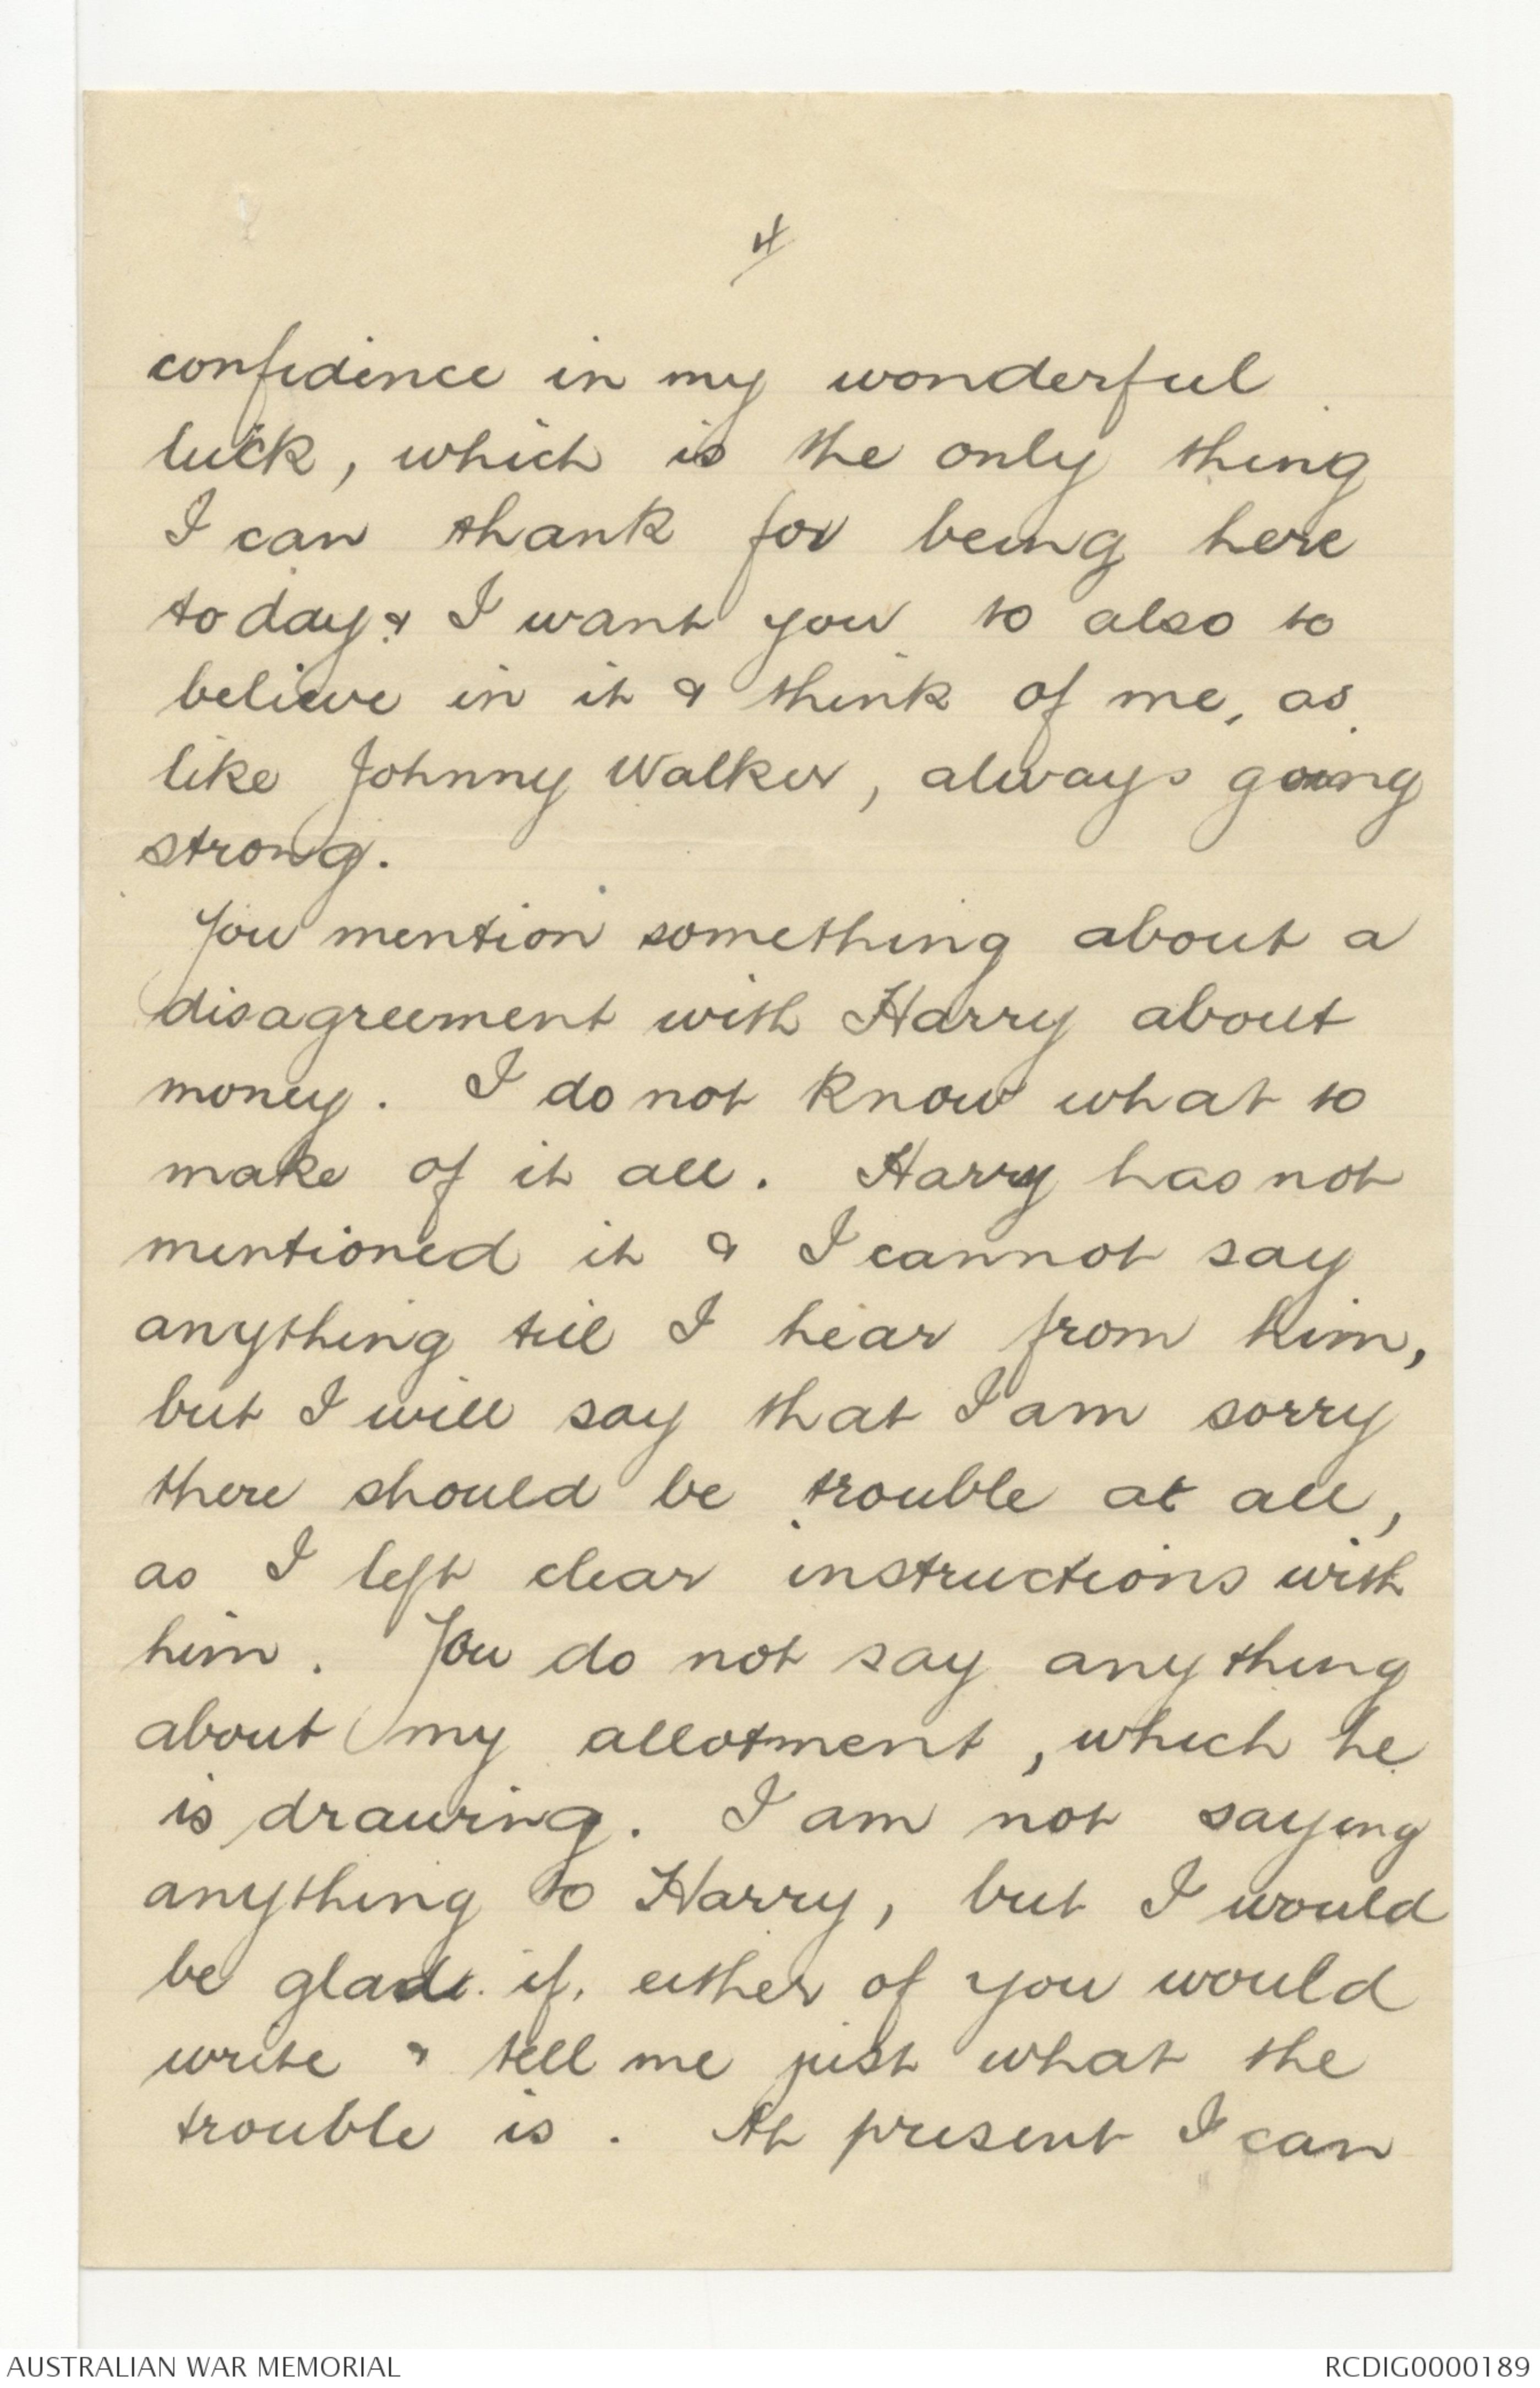 4/
confidence in my wonderful
luck, which is the only thing
I can thank for being here
today & I want you to also to
believe in it & think of me, as
like Johnny Walker, always going
strong.
You mention something about a
disagreement with Harry about
money. I do not know what to
make of it all. Harry has not
mentioned it & I cannot say
anything till I hear from him,
but I will say that I am sorry
there should be trouble at all,
as I left clear instructions with
him. You do not say anything
about my allotment, which he
is drawing. I am not saying
anything to Harry, but I would
be glad if, either of you would
write & tell me just what the
trouble is. At present I can
AUSTRALIAN WAR MEMORIAL
RCDIG0000189